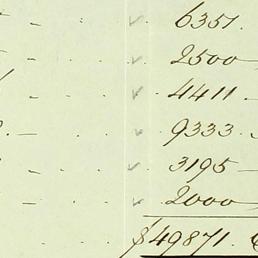 6351.
2500 —
4411 —
9333.
3195 —
2000
$49871.